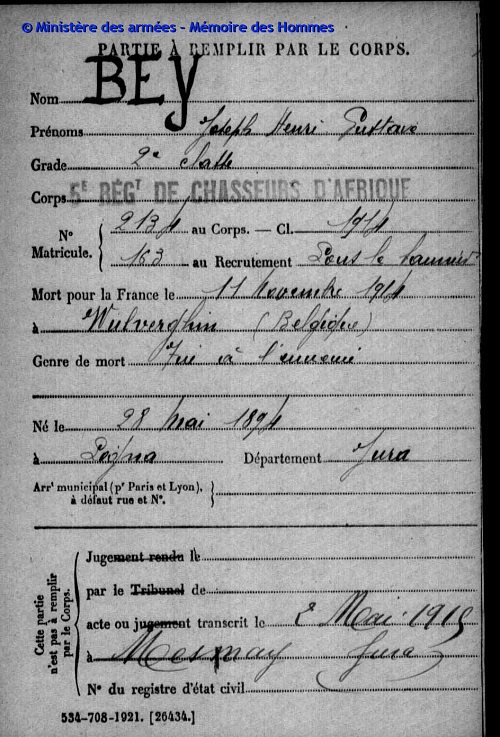 © Ministère des armées - Mémoire des Hommes
PARTIE À REMPLIR PAR LE CORPS.
Nom BEY
Prénoms Joseph Henri Gustave
Grade 2e classe
Corps 5E RÉGT DE CHASSEURS D'AFRIQUE
N° Matricule. { 2134 au Corps. — Cl. 1914
163 au Recrutement Lons le Saunier
Mort pour la France le 11 Novembre 1914
à Wulverghin (Belgique)
Genre de mort Tué à l'ennemi
Né le 28 Mai 1894
à Département Jura
Arrt municipal (pr Paris et Lyon), à défaut rue et N°. }
Cette partie n'est pas à remplir par le Corps.
Jugement rendu le
par le Tribunal de
acte ou jugement transcrit le 2 Mai 1915
à Mesnay Jura
N° du registre d'état civil
534-708-1921. [26434.]